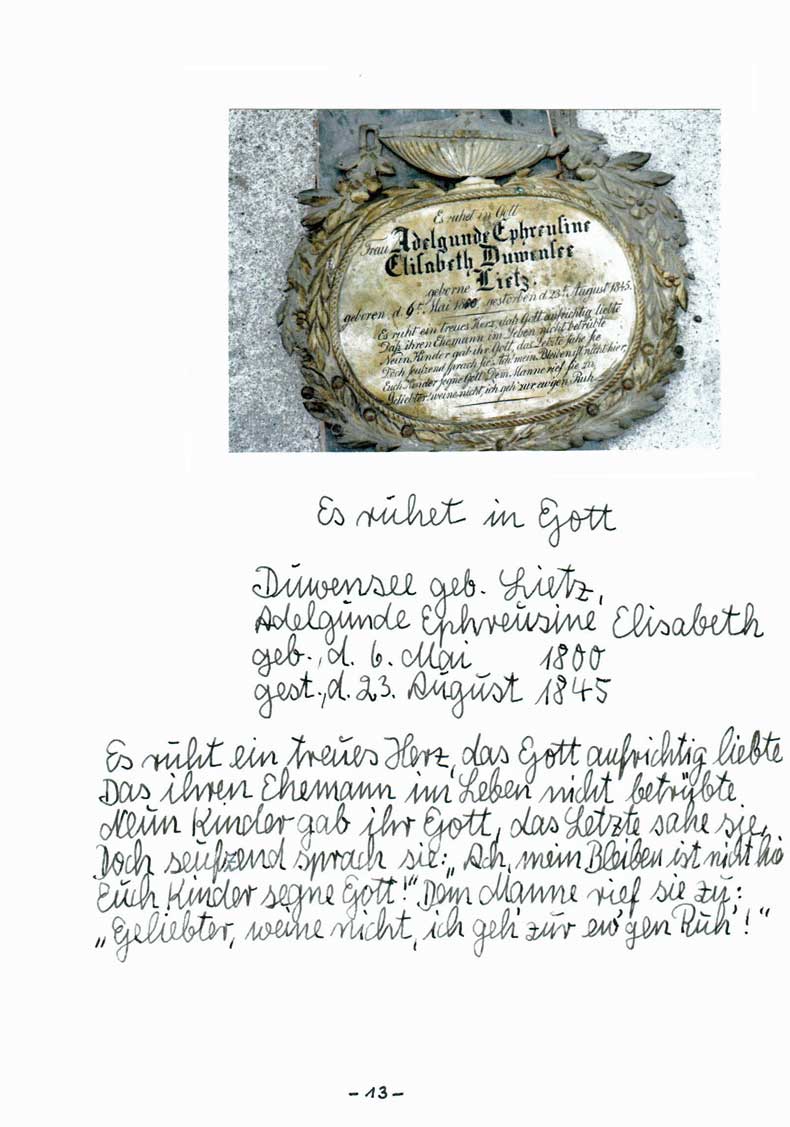 Es ruhet in Gott
Frau Adelgunde Ephreusine
Elisabeth Duwensee
geborne Lietz.
geboren, d. 6t. Mai 1800, gestorben d. 23t. August 1845.
Es ruht ein treues Herz, daß Gott aufrichtig liebte
Daß ihren Ehemann im Leben nicht betrübte
Neun Kinder gab ihr Gott, das Letzte sahe sie
Doch seufzend sprach sie: Ach, mein Bleiben ist nicht hier,
Euch Kinder segne Gott. Dem Manne rief sie zu,
Geliebter, weine nicht, ich geh' zur ewigen Ruh.
Es ruhet in Gott
Duwensee geb. Lietz,
Adelgunde Ephreusine Elisabeth
geb., d. 6. Mai 1800
gest., d. 23. August 1845
Es ruht ein treues Herz, das Gott aufrichtig liebte
Das ihren Ehemann im Leben nicht betrübte
Neun Kinder gab ihr Gott, das Letzte sahe sie,
Doch seufzend sprach sie: „Ach, mein Bleiben ist nicht hie
Euch Kinder segne Gott!“ Dem Manne rief sie zu:
„Geliebter, weine nicht, ich geh' zur ew'gen Ruh'!“
- 13 -